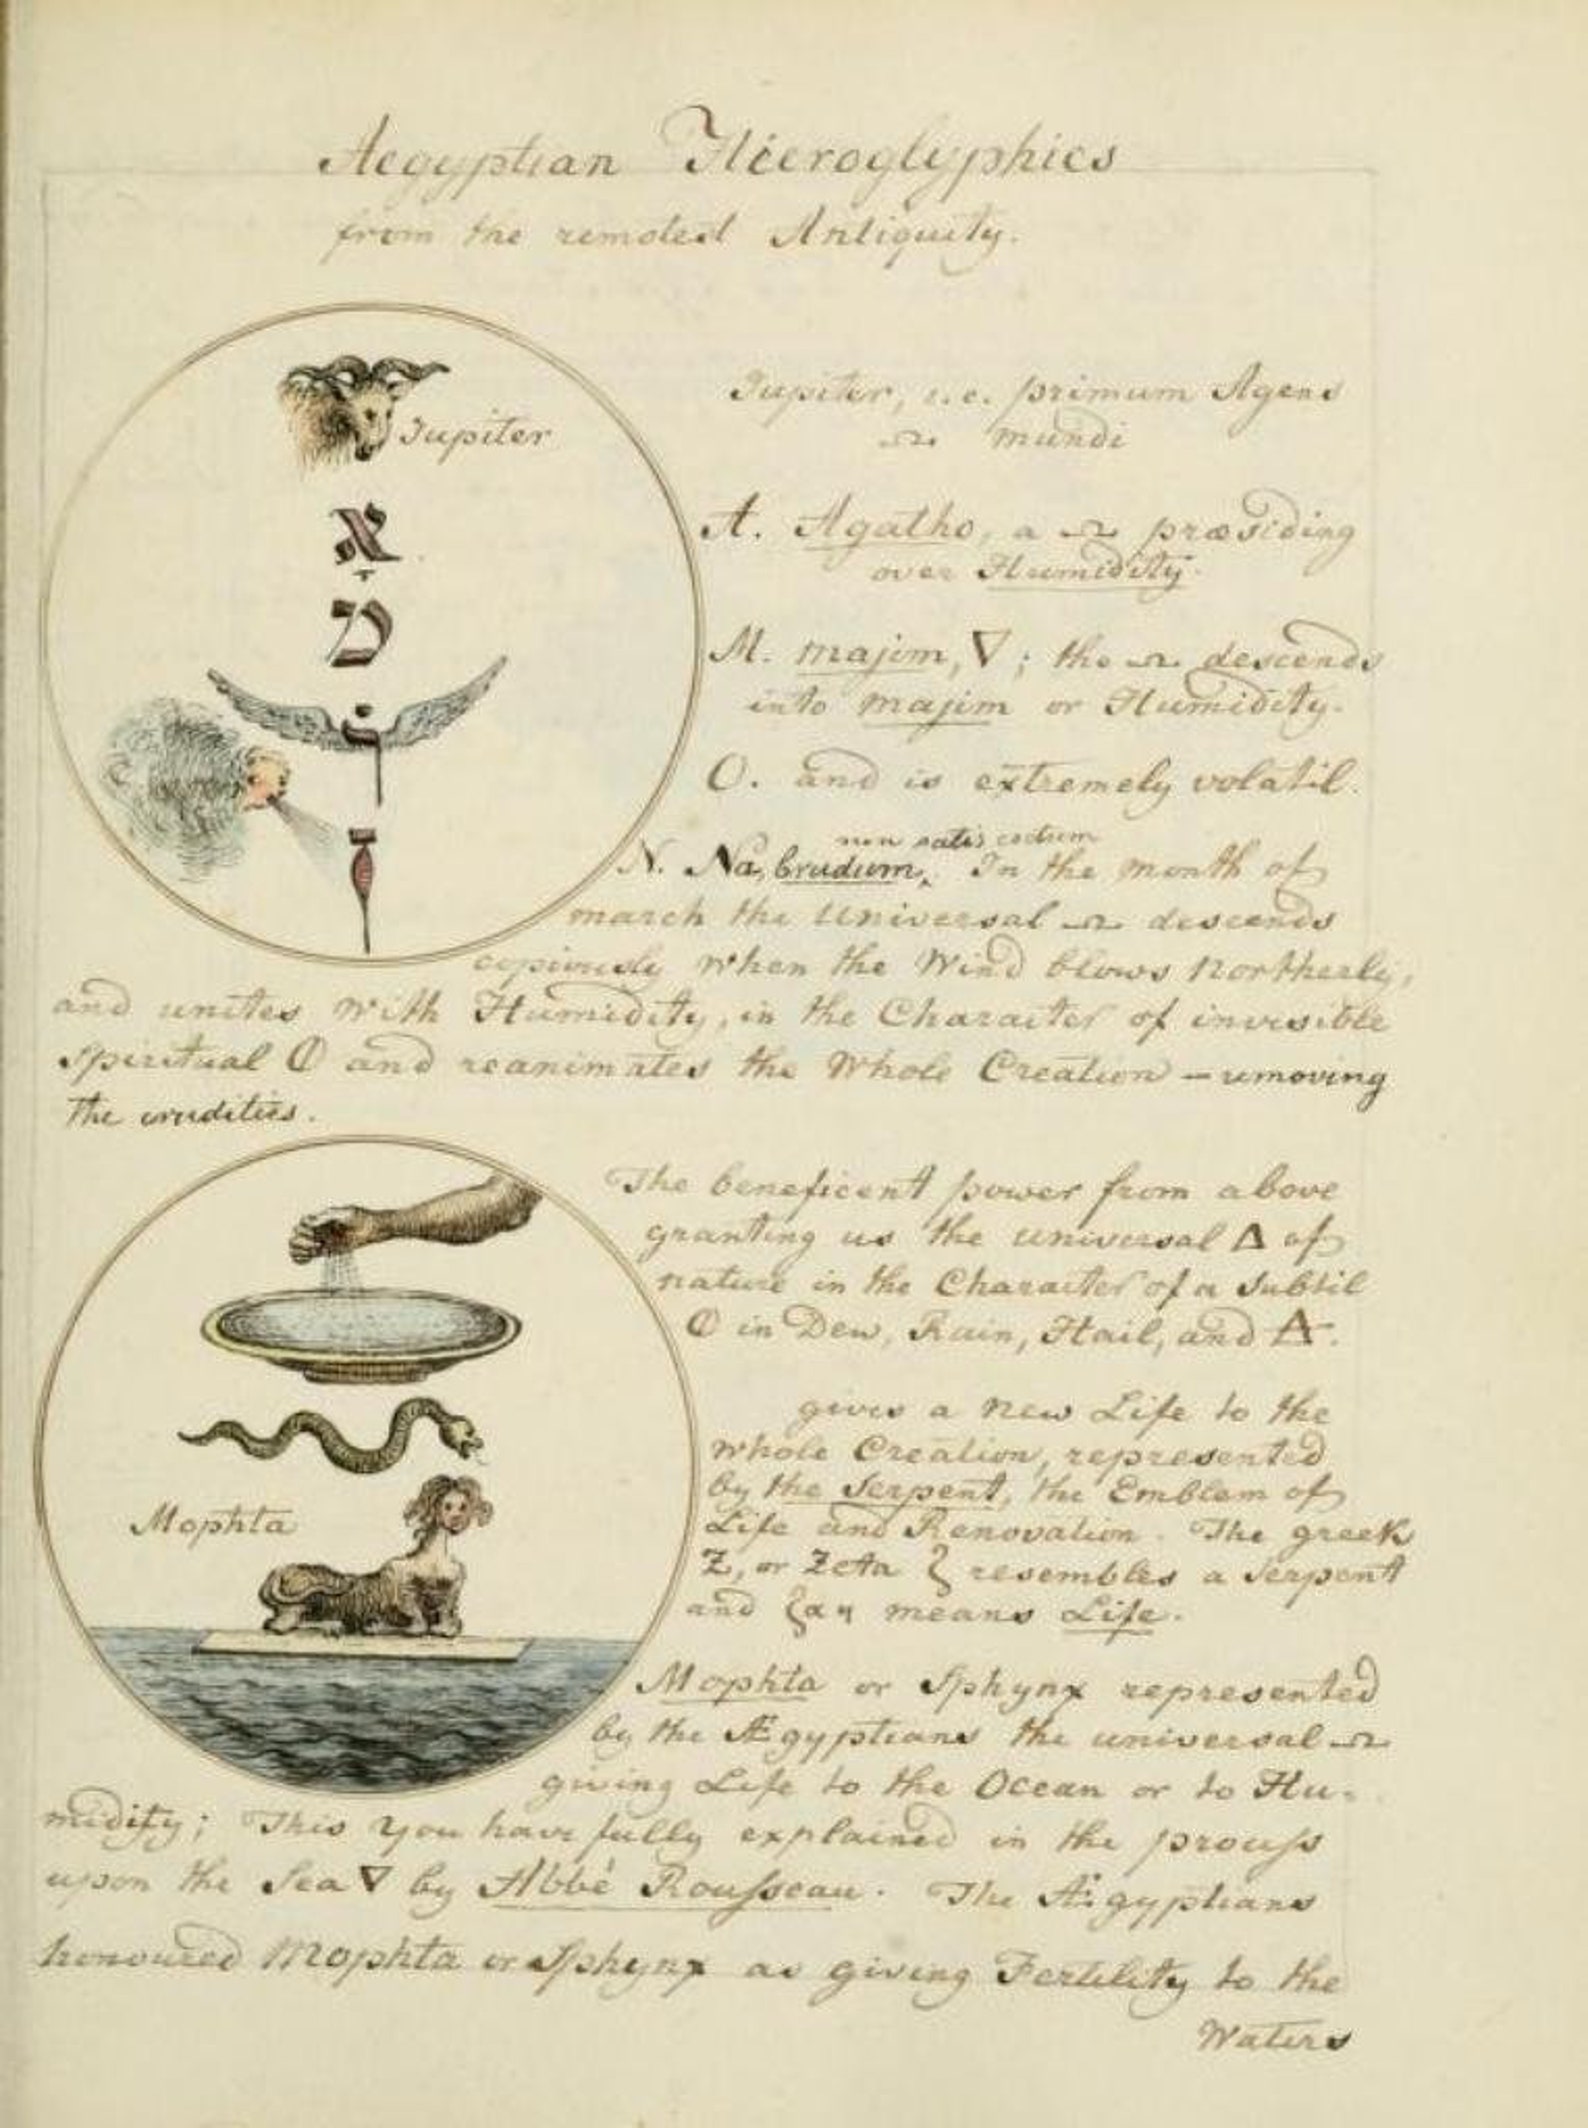 Aegyptian Hieroglyphics
from the remotest Antiquity.
Jupiter
א
מ
ו
ן
Jupiter, i.e. primum Agens
mundi
A. Agatho, a præsiding
over Humidity.
M. majim, ▽; the descends
into majim or Humidity.
O. and is extremely volatil.
non satis coctum
N. Na, Crudum. In the Month of
march the Universal descends
copiously when the Wind blows Northerly,
and unites with Humidity, in the Character of invisible
Spiritual and reanimates the Whole Creation – removing
the crudities.
The beneficent power from above
granting us the universal △ of
nature in the Character of a Subtil
in Dew, Rain, Hail, and 🜁.
gives a new Life to the
whole Creation, represented
by the Serpent, the Emblem of
Life and Renovation. The greek
Z, or Zeta ζ resembles a Serpent
and ζαη means Life.
Mophta
Mophta or Sphynx represented
by the Ægyptians the universal
giving Life to the Ocean or to Hu-
midity; This you have fully explained in the process
upon the Sea ▽ by Abbé Rousseau. The Ægyptians
honoured Mophta or Sphynx as giving Fertility to the
Waters